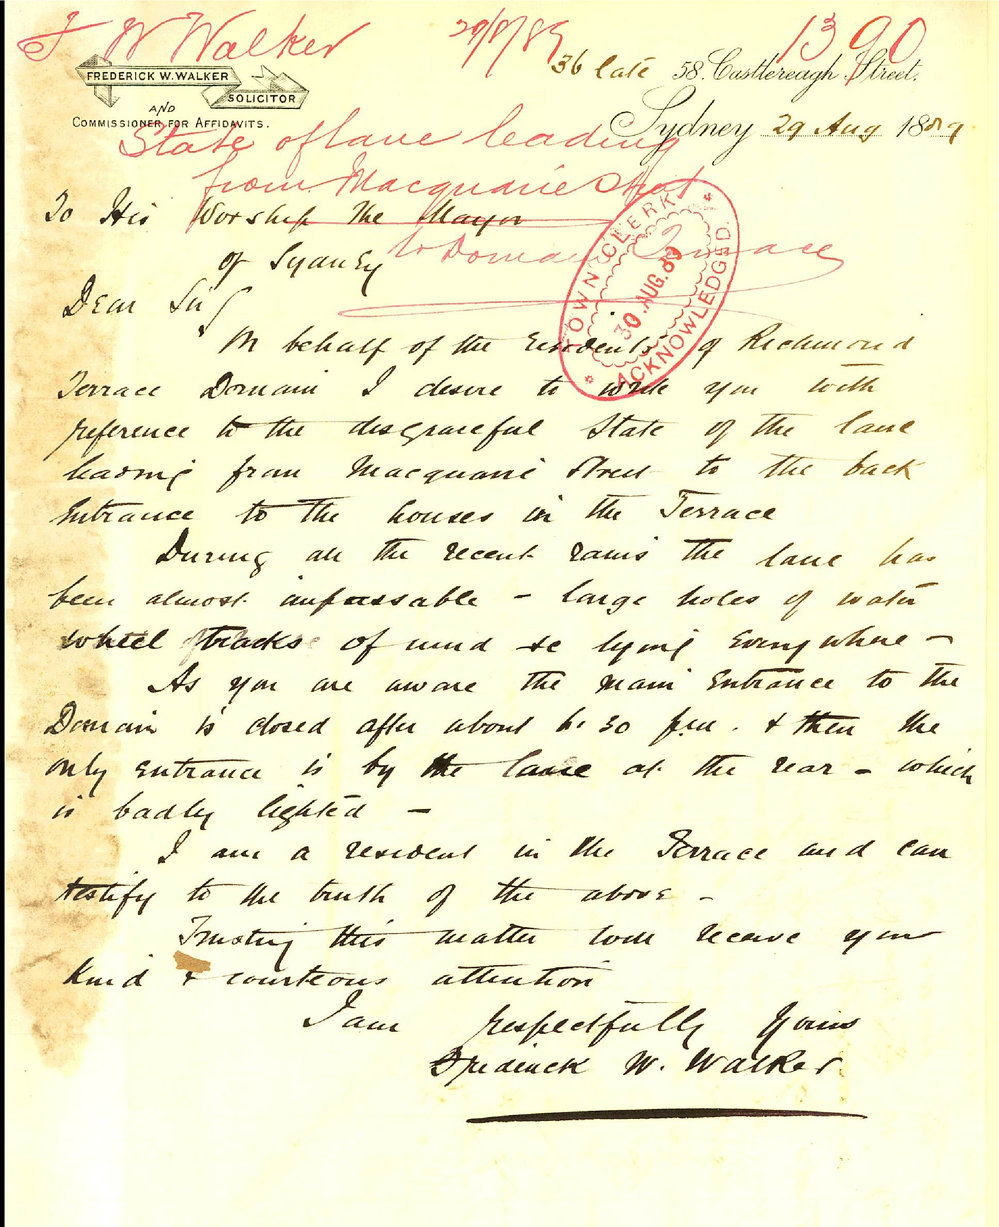 F W Walker 29/8/89 1390
FREDERICK W. WALKER
SOLICITOR
AND
COMMISSIONER FOR AFFIDAVITS.
36 late 58. Castlereagh Street.
Sydney 29 Aug 1889
State of lane leading
from Macquarie Street
to Domain Terrace
To His Worship the Mayor
of Sydney
TOWN CLERK
30 AUG. 89
ACKNOWLEDGED
Dear Sir
On behalf of the residents of Richmond
Terrace Domain I desire to write you with
reference to the disgraceful state of the lane
leading from Macquarie Street to the back
entrance to the houses in the Terrace
During all the recent rains the lane has
been almost impassable - large holes of water
wheel tracks of mud &c lying everywhere -
As you are aware the main entrance to the
Domain is closed after about 6.30 p.m. & then the
only entrance is by the lane at the rear - which
is badly lighted -
I am a resident in the Terrace and can
testify to the truth of the above -
Trusting this matter will receive your
kind & courteous attention
I am respectfully yours
Frederick W. Walker